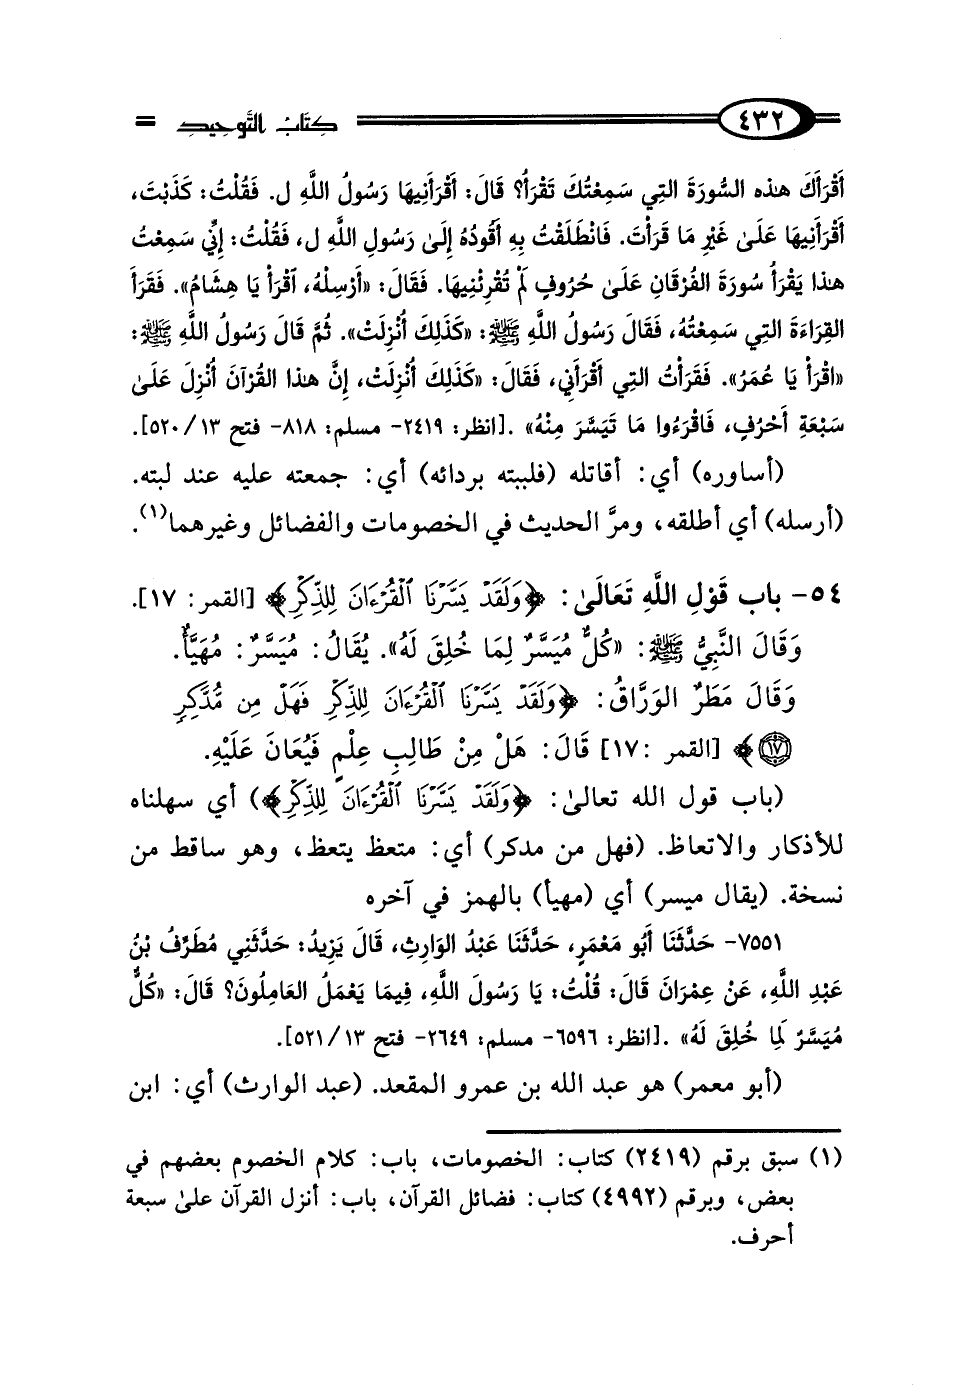 ٤٣٢ كِتَابُ التَّوحِيدِ =
أَقْرَأَكَ هذِه السُّورَةَ التِي سَمِعْتُكَ تَقْرَأُ؟ قَالَ: أَقْرَأَنِيهَا رَسُولُ اللَّهِ ل. فَقُلْتُ: كَذَبْتَ،
أَقْرَأَنِيهَا عَلَىٰ غَيْرِ مَا قَرَأْتَ. فَانْطَلَقْتُ بِهِ أَقُودُهُ إِلَىٰ رَسُولِ اللَّهِ ل، فَقُلْتُ: إِنِّي سَمِعْتُ
هذا يَقْرَأُ سُورَةَ الفُرْقَانِ عَلَىٰ حُرُوفٍ لَمْ تُقْرِئْنِيهَا. فَقَالَ: «أَرْسِلْهُ، اقْرَأْ يَا هِشَامُ». فَقَرَأَ
القِرَاءَةَ التِي سَمِعْتُهُ، فَقَالَ رَسُولُ اللَّهِ ﷺ: «كَذَلِكَ أُنْزِلَتْ». ثُمَّ قَالَ رَسُولُ اللَّهِ ﷺ:
«اقْرَأْ يَا عُمَرُ». فَقَرَأْتُ التِي أَقْرَأَنِي، فَقَالَ: «كَذَلِكَ أُنْزِلَتْ، إِنَّ هذا القُرْآنَ أُنْزِلَ عَلَىٰ
سَبْعَةِ أَحْرُفٍ، فَاقْرَءُوا مَا تَيَسَّرَ مِنْهُ» .[انظر: ٢٤١٩- مسلم: ٨١٨- فتح ١٣/ ٥٢٠].
(أساوره) أي: أقاتله (فلببته بردائه) أي: جمعته عليه عند لبته.
(أرسله) أي أطلقه، ومرَّ الحديث في الخصومات والفضائل وغيرهما(١).
٥٤- باب قَوْلِ اللَّهِ تَعَالَىٰ: ﴿وَلَقَدْ يَسَّرْنَا الْقُرْءَانَ لِلذِّكْرِ﴾ [القمر: ١٧].
وَقَالَ النَّبِيُّ ﷺ: «كُلٌّ مُيَسَّرٌ لِمَا خُلِقَ لَهُ». يُقَالُ: مُيَسَّرٌ: مُهَيَّأٌ.
وَقَالَ مَطَرٌ الوَرَّاقُ: ﴿وَلَقَدْ يَسَّرْنَا الْقُرْءَانَ لِلذِّكْرِ فَهَلْ مِن مُّدَّكِرٍ
١٧﴾ [القمر :١٧] قَالَ: هَلْ مِنْ طَالِبِ عِلْمٍ فَيُعَانَ عَلَيْهِ.
(باب قول الله تعالىٰ: ﴿وَلَقَدْ يَسَّرْنَا الْقُرْءَانَ لِلذِّكْرِ﴾) أي سهلناه
للأذكار والاتعاظ. (فهل من مدكر) أي: متعظ يتعظ، وهو ساقط من
نسخة. (يقال ميسر) أي (مهيأ) بالهمز في آخره
٧٥٥١- حَدَّثَنَا أَبُو مَعْمَرٍ، حَدَّثَنَا عَبْدُ الوَارِثِ، قَالَ يَزِيدُ: حَدَّثَنِي مُطَرِّفُ بْنُ
عَبْدِ اللَّهِ، عَنْ عِمْرَانَ قَالَ: قُلْتُ: يَا رَسُولَ اللَّهِ، فِيمَا يَعْمَلُ العَامِلُونَ؟ قَالَ: «كُلٌّ
مُيَسَّرٌ لِمَا خُلِقَ لَهُ» .[انظر: ٦٥٩٦- مسلم: ٢٦٤٩- فتح ١٣/ ٥٢١].
(أبو معمر) هو عبد الله بن عمرو المقعد. (عبد الوارث) أي: ابن
(١) سبق برقم (٢٤١٩) كتاب: الخصومات، باب: كلام الخصوم بعضهم في
بعض، وبرقم (٤٩٩٢) كتاب: فضائل القرآن، باب: أنزل القرآن علىٰ سبعة
أحرف.